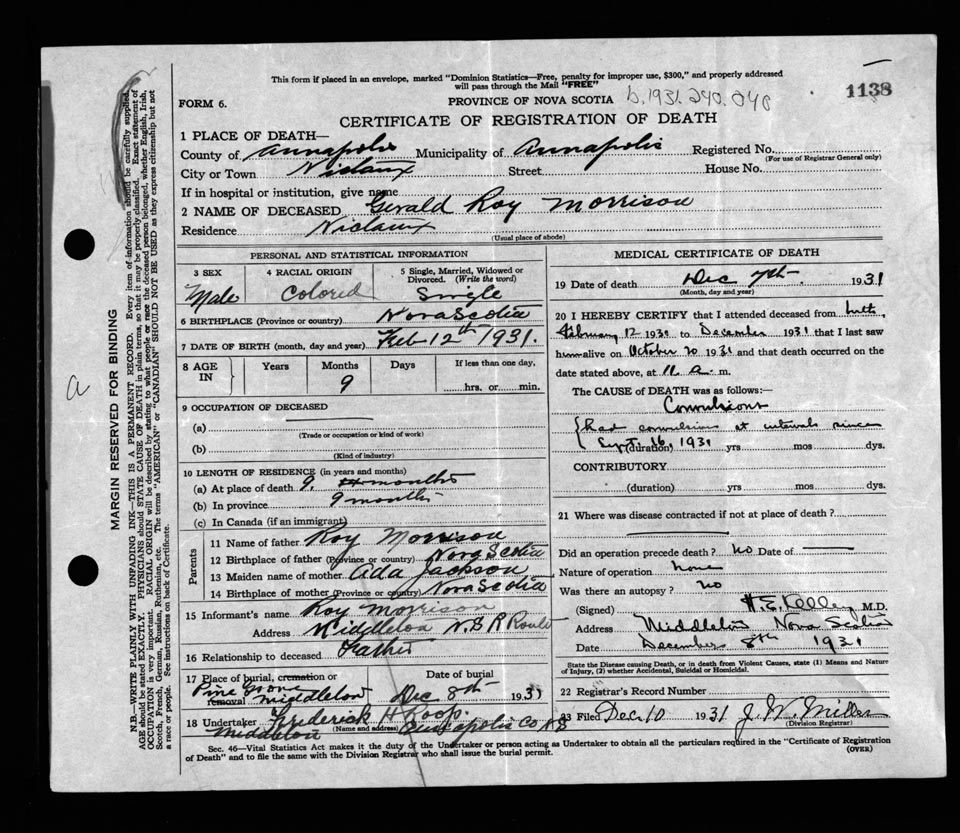 This form if placed in an envelope, marked "Dominion Statistics—Free, penalty for improper use, $300," and properly addressed
will pass through the Mail "FREE"
1138
FORM 6.
PROVINCE OF NOVA SCOTIA
b.1931.240.040
CERTIFICATE OF REGISTRATION OF DEATH
1 PLACE OF DEATH—
County of Annapolis Municipality of Annapolis Registered No.
(For use of Registrar General only)
City or Town Nictaux Street House No.
If in hospital or institution, give name
2 NAME OF DECEASED Gerald Roy Morrison
Residence Nictaux
(Usual place of abode)
PERSONAL AND STATISTICAL INFORMATION
3 SEX 4 RACIAL ORIGIN 5 Single, Married, Widowed or
Divorced. (Write the word)
Male Colored Single
6 BIRTHPLACE (Province or country) Nova Scotia
7 DATE OF BIRTH (month, day and year) Feb 12th 1931.
8 AGE IN Years Months Days If less than one day,
9 hrs. or min.
9 OCCUPATION OF DECEASED
(a)
(Trade or occupation or kind of work)
(b)
(Kind of industry)
10 LENGTH OF RESIDENCE (in years and months)
(a) At place of death 9. months
(b) In province 9 months
(c) In Canada (if an immigrant)
Parents
11 Name of father Roy Morrison
12 Birthplace of father (Province or country) Nova Scotia
13 Maiden name of mother Ada Jackson
14 Birthplace of mother (Province or country) Nova Scotia
15 Informant's name Roy Morrison
Address Middleton N.S R Route
16 Relationship to deceased Father
17 Place of burial, cremation or removal Date of burial
Pine Grove Middleton Dec 8th 1931
18 Undertaker Frederick H Roop.
Middleton (Name and address) Annapolis Co NS
MEDICAL CERTIFICATE OF DEATH
19 Date of death Dec 7th. 1931
(Month, day and year)
20 I HEREBY CERTIFY that I attended deceased from birth,
February 12 1931 to December 1931 that I last saw
him alive on October 20 1931 and that death occurred on the
date stated above, at 11 a. m.
The CAUSE of DEATH was as follows:—
Convulsions
Had convulsions at intervals since
Sept. 16, 1931 (duration) yrs mos dys.
CONTRIBUTORY
(duration) yrs mos dys.
21 Where was disease contracted if not at place of death?
Did an operation precede death? no Date of
Nature of operation None
Was there an autopsy? no
(Signed) H. E. Kelley M.D.
Address Middleton Nova Scotia
Date December 8th 1931
State the Disease causing Death, or in death from Violent Causes, state (1) Means and Nature
of Injury, (2) whether Accidental, Suicidal or Homicidal.
22 Registrar's Record Number
23 Filed Dec 10 1931 J. W. Miller
(Division Registrar)
Sec. 46—Vital Statistics Act makes it the duty of the Undertaker or person acting as Undertaker to obtain all the particulars required in the "Certificate of Registration
of Death" and to file the same with the Division Registrar who shall issue the burial permit.
(OVER)
a
MARGIN RESERVED FOR BINDING
N.B.—WRITE PLAINLY WITH UNFADING INK—THIS IS A PERMANENT RECORD. Every item of information should be carefully supplied.
AGE should be stated EXACTLY. PHYSICIANS should STATE CAUSE OF DEATH in plain terms, so that it may be properly classified. Exact statement of
OCCUPATION is very important. RACIAL ORIGIN will be described by stating to what people or race the deceased person belonged, whether English, Irish,
Scotch, French, German, Russian, Ruthenian, etc. The terms "AMERICAN" or "CANADIAN" SHOULD NOT BE USED as they express citizenship but not
a race or people. See instructions on back of Certificate.